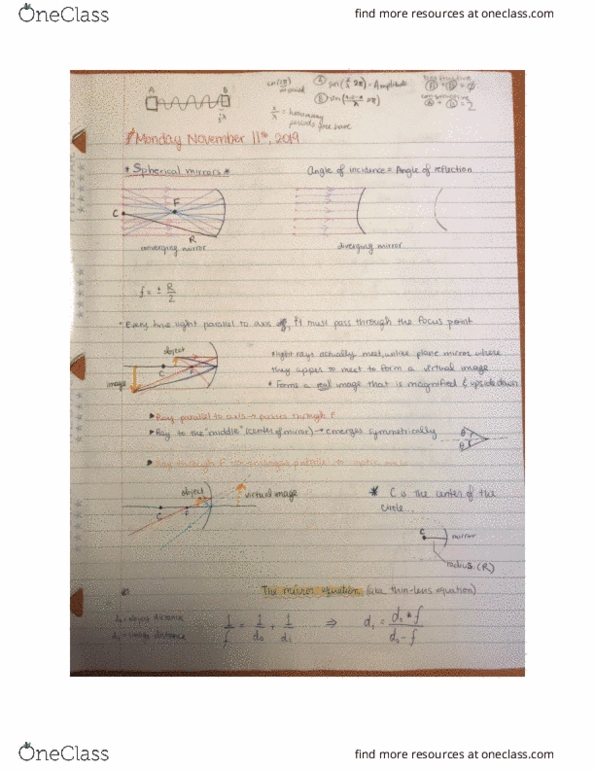 OneClass
find more resources at oneclass.com
A B
Amplitude
Monday November 11th, 2019
* Spherical mirrors * Angle of incidence = Angle of reflection
C F R
converging mirror diverging mirror
f = ± R/2
it must pass through the focus point
object
image
C
light rays actually meet, unlike plane mirror where
they appear to meet to form a virtual image
* Forms a real image that is magnified & upside down
Ray parallel to axis → passes through F
Ray to the "middle" (center of mirror) → emerges symmetrically
θ
θ
Ray through F
object virtual image
C F
* C is the center of the
circle...
C mirror
radius (R)
The mirror equation (like thin-lens equation)
object distance
image distance
1/f = 1/do + 1/di ⇒ di = do * f / do - f
OneClass
find more resources at oneclass.com